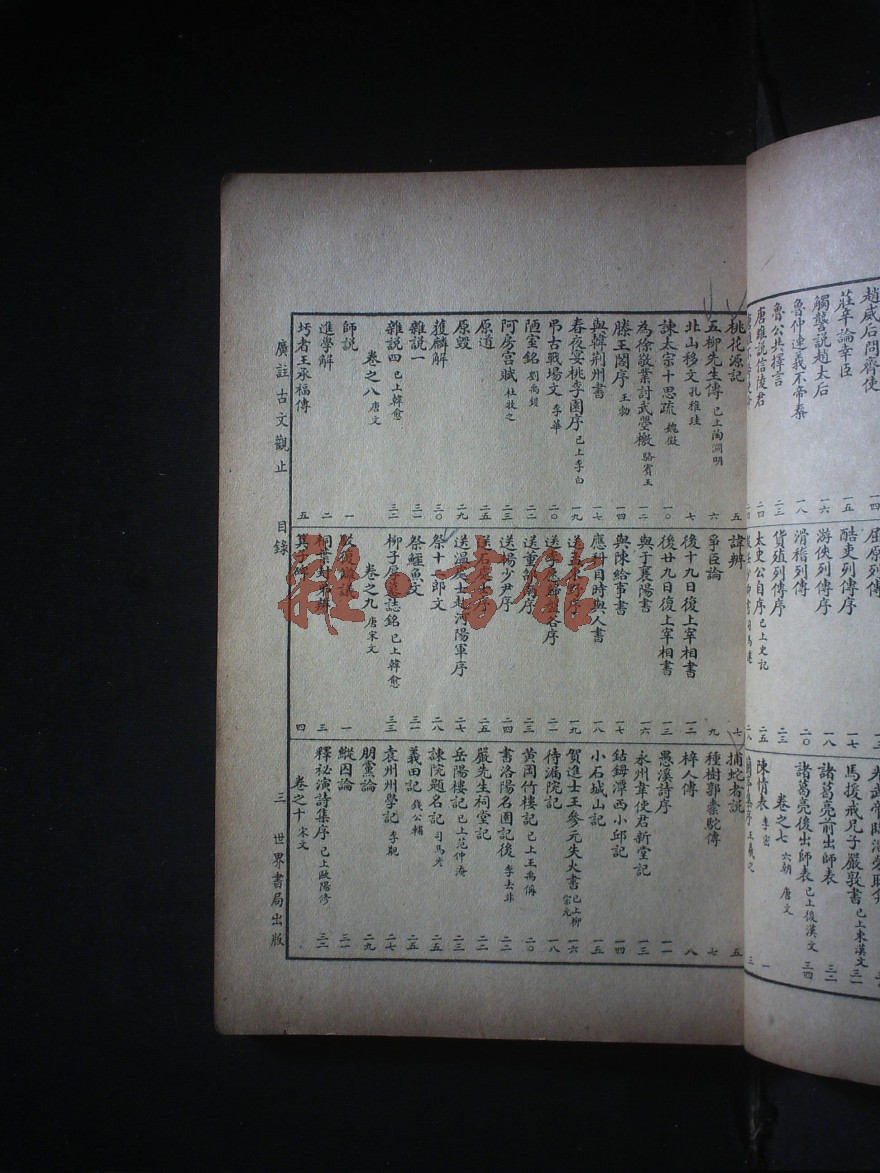 趙威后問齊使 一四
莊辛論幸臣 一五
觸讋說趙太后 一六
魯仲連義不帝秦 一八
魯共公擇言 二三
唐雎說信陵君 二四
屈原列傳
酷吏列傳序 一七
游俠列傳序 一八
滑稽列傳 二〇
貨殖列傳序 二三
太史公自序 已上史記 二五
馬援戒兄子嚴敦書 已上東漢文 三一
諸葛亮前出師表 三二
諸葛亮後出師表 已上後漢文 三四
卷之七 六朝 唐文
陳情表 李密 一
桃花源記 五
五柳先生傳 已上陶淵明 六
北山移文 孔稚珪 七
諫太宗十思疏 魏徵 一〇
為徐敬業討武曌檄 駱賓王 一二
滕王閣序 王勃 一四
與韓荆州書 一七
春夜宴桃李園序 已上李白 一九
弔古戰場文 李華 二〇
陋室銘 劉禹錫 二二
阿房宮賦 杜牧之 二三
原道 二五
原毀 二九
獲麟解 三〇
雜說一 三一
雜說四 已上韓愈 三二
卷之八 唐文
師說 一
進學解 二
圬者王承福傳 五
諱辨 七
爭臣論 九
後十九日復上宰相書 一二
後廿九日復上宰相書 一三
與于襄陽書 一六
與陳給事書 一七
應科目時與人書 一八
送孟東野序 一九
送李愿歸盤谷序 二一
送董邵南序
送楊少尹序 二四
送石處士序 二五
送溫處士赴河陽軍序 二七
祭十二郎文 二八
祭鱷魚文 三一
柳子厚墓誌銘 已上韓愈 三三
卷之九 唐宋文
駁復讎議 一
桐葉封弟辨 三
箕子碑 四
捕蛇者說 五
種樹郭橐駝傳 七
梓人傳 八
愚溪詩序 一一
永州韋使君新堂記 一三
鈷鉧潭西小邱記 一四
小石城山記 一五
賀進士王參元失火書 已上柳宗元 一六
待漏院記 一八
黃岡竹樓記 已上王禹偁 二〇
書洛陽名園記後 李去非 二二
嚴先生祠堂記 二二
岳陽樓記 已上范仲淹 二三
諫院題名記 司馬光 二五
義田記 錢公輔 二五
袁州州學記 李覯 二七
朋黨論 二九
縱囚論 三一
釋祕演詩集序 已上歐陽修 三二
卷之十 宋文
廣註古文觀止 目錄 三 世界書局出版
雜·書館